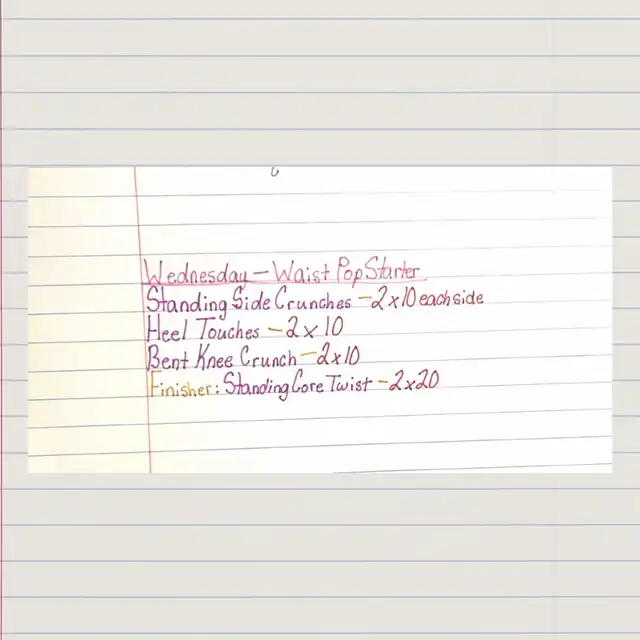 Wednesday – Waist Pop Starter
Standing Side Crunches – 2x10 each side
Heel Touches – 2x10
Bent Knee Crunch – 2x10
Finisher: Standing Core Twist – 2x20